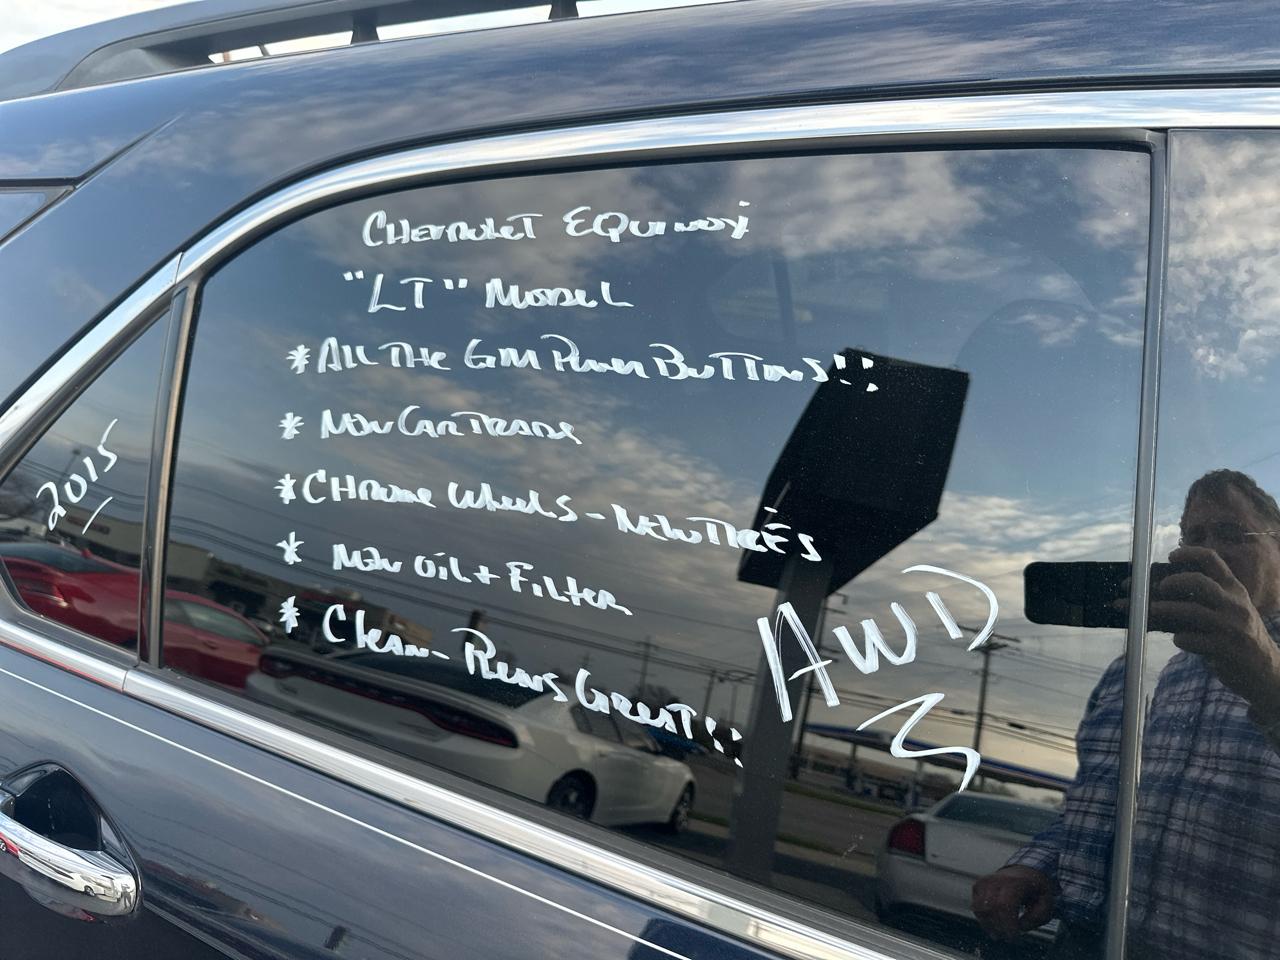 CHEVROLET EQUINOX
"LT" MODEL
* ALL THE GM POWER BUTTONS!!
* NEW CAR TRADE
* CHROME WHEELS - NEW TIRES
* NEW OIL + FILTER
* CLEAN - RUNS GREAT!!
2015
AWD